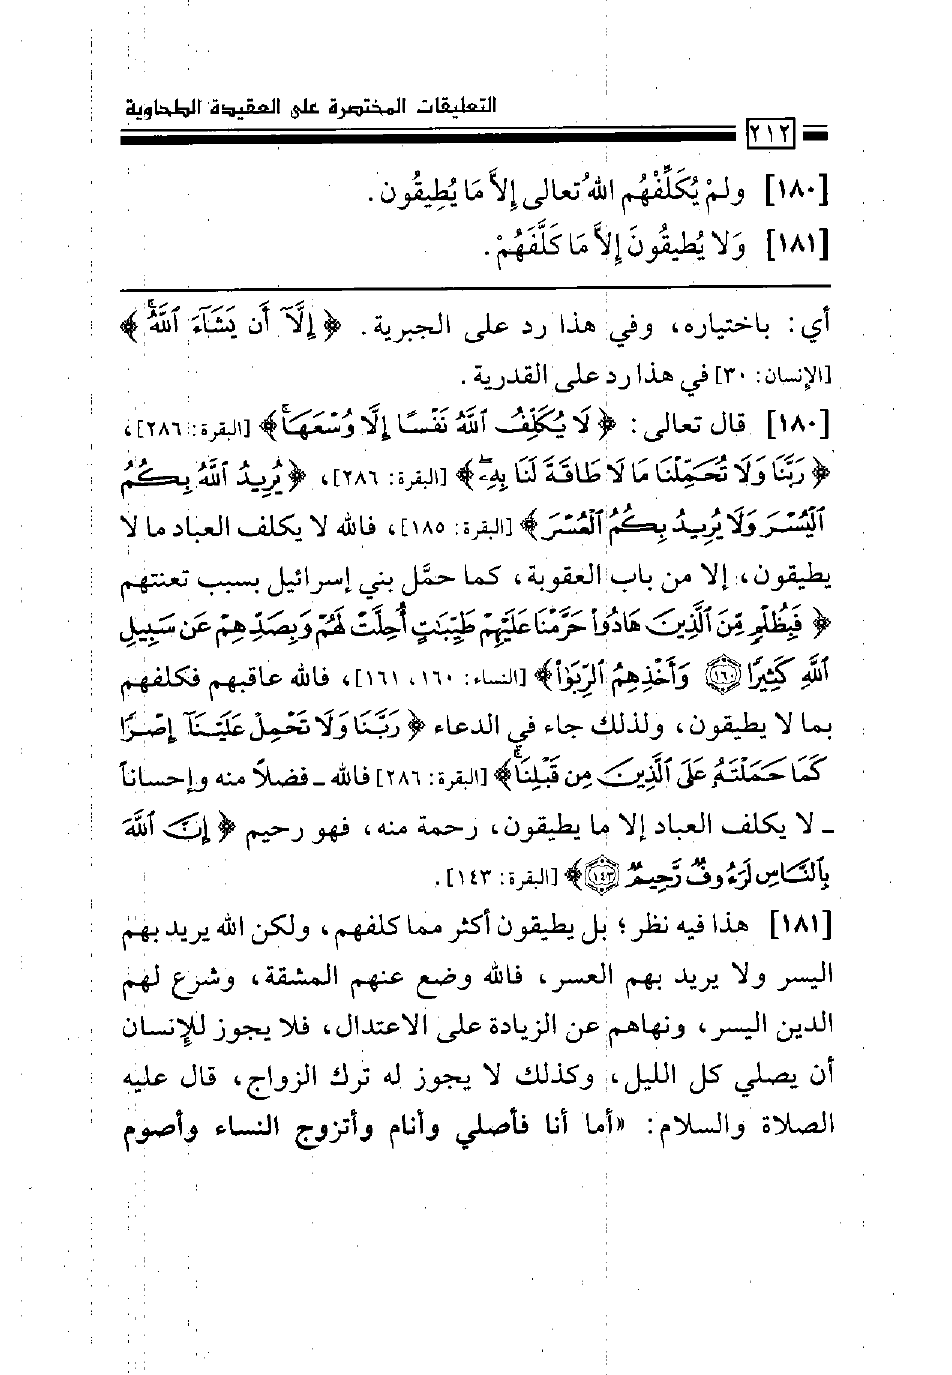 التعليقات المختصرة على العقيدة الطحاوية
٢١٢
[١٨٠] ولمْ يُكَلِّفْهُم اللهُ تعالى إلاَّ مَا يُطِيقُون.
[١٨١] وَلا يُطيقُونَ إلاَّ مَا كَلَّفَهُمْ.
أي: باختياره، وفي هذا رد على الجبرية. ﴿إِلَّآ أَن يَشَآءَ ٱللَّهُۚ﴾
[الإنسان: ٣٠] في هذا رد على القدرية.
[١٨٠] قال تعالى: ﴿لَا يُكَلِّفُ ٱللَّهُ نَفْسًا إِلَّا وُسْعَهَاۚ﴾ [البقرة: ٢٨٦]،
﴿رَبَّنَا وَلَا تُحَمِّلْنَا مَا لَا طَاقَةَ لَنَا بِهِۦۖ﴾ [البقرة: ٢٨٦]، ﴿يُرِيدُ ٱللَّهُ بِكُمُ
ٱلْيُسْرَ وَلَا يُرِيدُ بِكُمُ ٱلْعُسْرَ﴾ [البقرة: ١٨٥]، فالله لا يكلف العباد ما لا
يطيقون، إلا من باب العقوبة، كما حمَّل بني إسرائيل بسبب تعنتهم
﴿فَبِظُلْمٍ مِّنَ ٱلَّذِينَ هَادُوا۟ حَرَّمْنَا عَلَيْهِمْ طَيِّبَٰتٍ أُحِلَّتْ لَهُمْ وَبِصَدِّهِمْ عَن سَبِيلِ
ٱللَّهِ كَثِيرًا ١٦٠ وَأَخْذِهِمُ ٱلرِّبَوٰا۟﴾ [النساء: ١٦٠، ١٦١]، فالله عاقبهم فكلفهم
بما لا يطيقون، ولذلك جاء في الدعاء ﴿رَبَّنَا وَلَا تَحْمِلْ عَلَيْنَآ إِصْرًا
كَمَا حَمَلْتَهُۥ عَلَى ٱلَّذِينَ مِن قَبْلِنَاۚ﴾ [البقرة: ٢٨٦] فالله ـ فضلاً منه وإحساناً
ـ لا يكلف العباد إلا ما يطيقون، رحمة منه، فهو رحيم ﴿إِنَّ ٱللَّهَ
بِٱلنَّاسِ لَرَءُوفٌ رَّحِيمٌ ١٤٣﴾ [البقرة: ١٤٣].
[١٨١] هذا فيه نظر؛ بل يطيقون أكثر مما كلفهم، ولكن الله يريد بهم
اليسر ولا يريد بهم العسر، فالله وضع عنهم المشقة، وشرع لهم
الدين اليسر، ونهاهم عن الزيادة على الاعتدال، فلا يجوز للإنسان
أن يصلي كل الليل، وكذلك لا يجوز له ترك الزواج، قال عليه
الصلاة والسلام: «أما أنا فأصلي وأنام وأتزوج النساء وأصوم